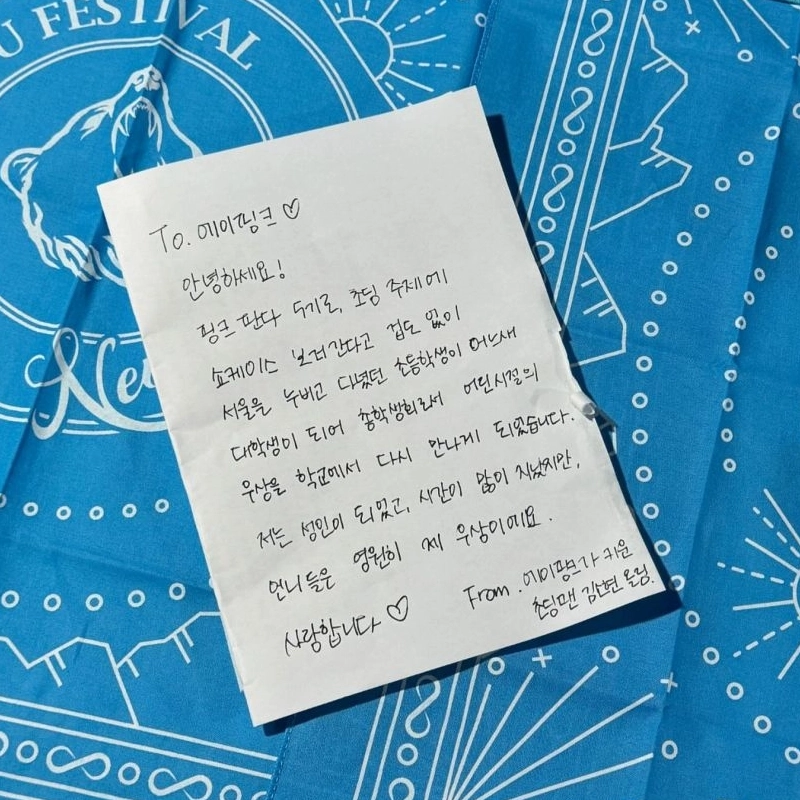 U FESTIVAL
To. 에이핑크 ♡
안녕하세요!
핑크 판다 5기로, 초딩 주제에
쇼케이스 보러간다고 겁도 없이
서울을 누비고 다녔던 초등학생이 어느새
대학생이 되어 총학생회로서 어린시절의
우상을 학교에서 다시 만나게 되었습니다.
저는 성인이 되었고, 시간이 많이 지났지만,
언니들은 영원히 제 우상이에요.
사랑합니다 ♡
From. 에이핑크가 키운
초딩맨 올림.